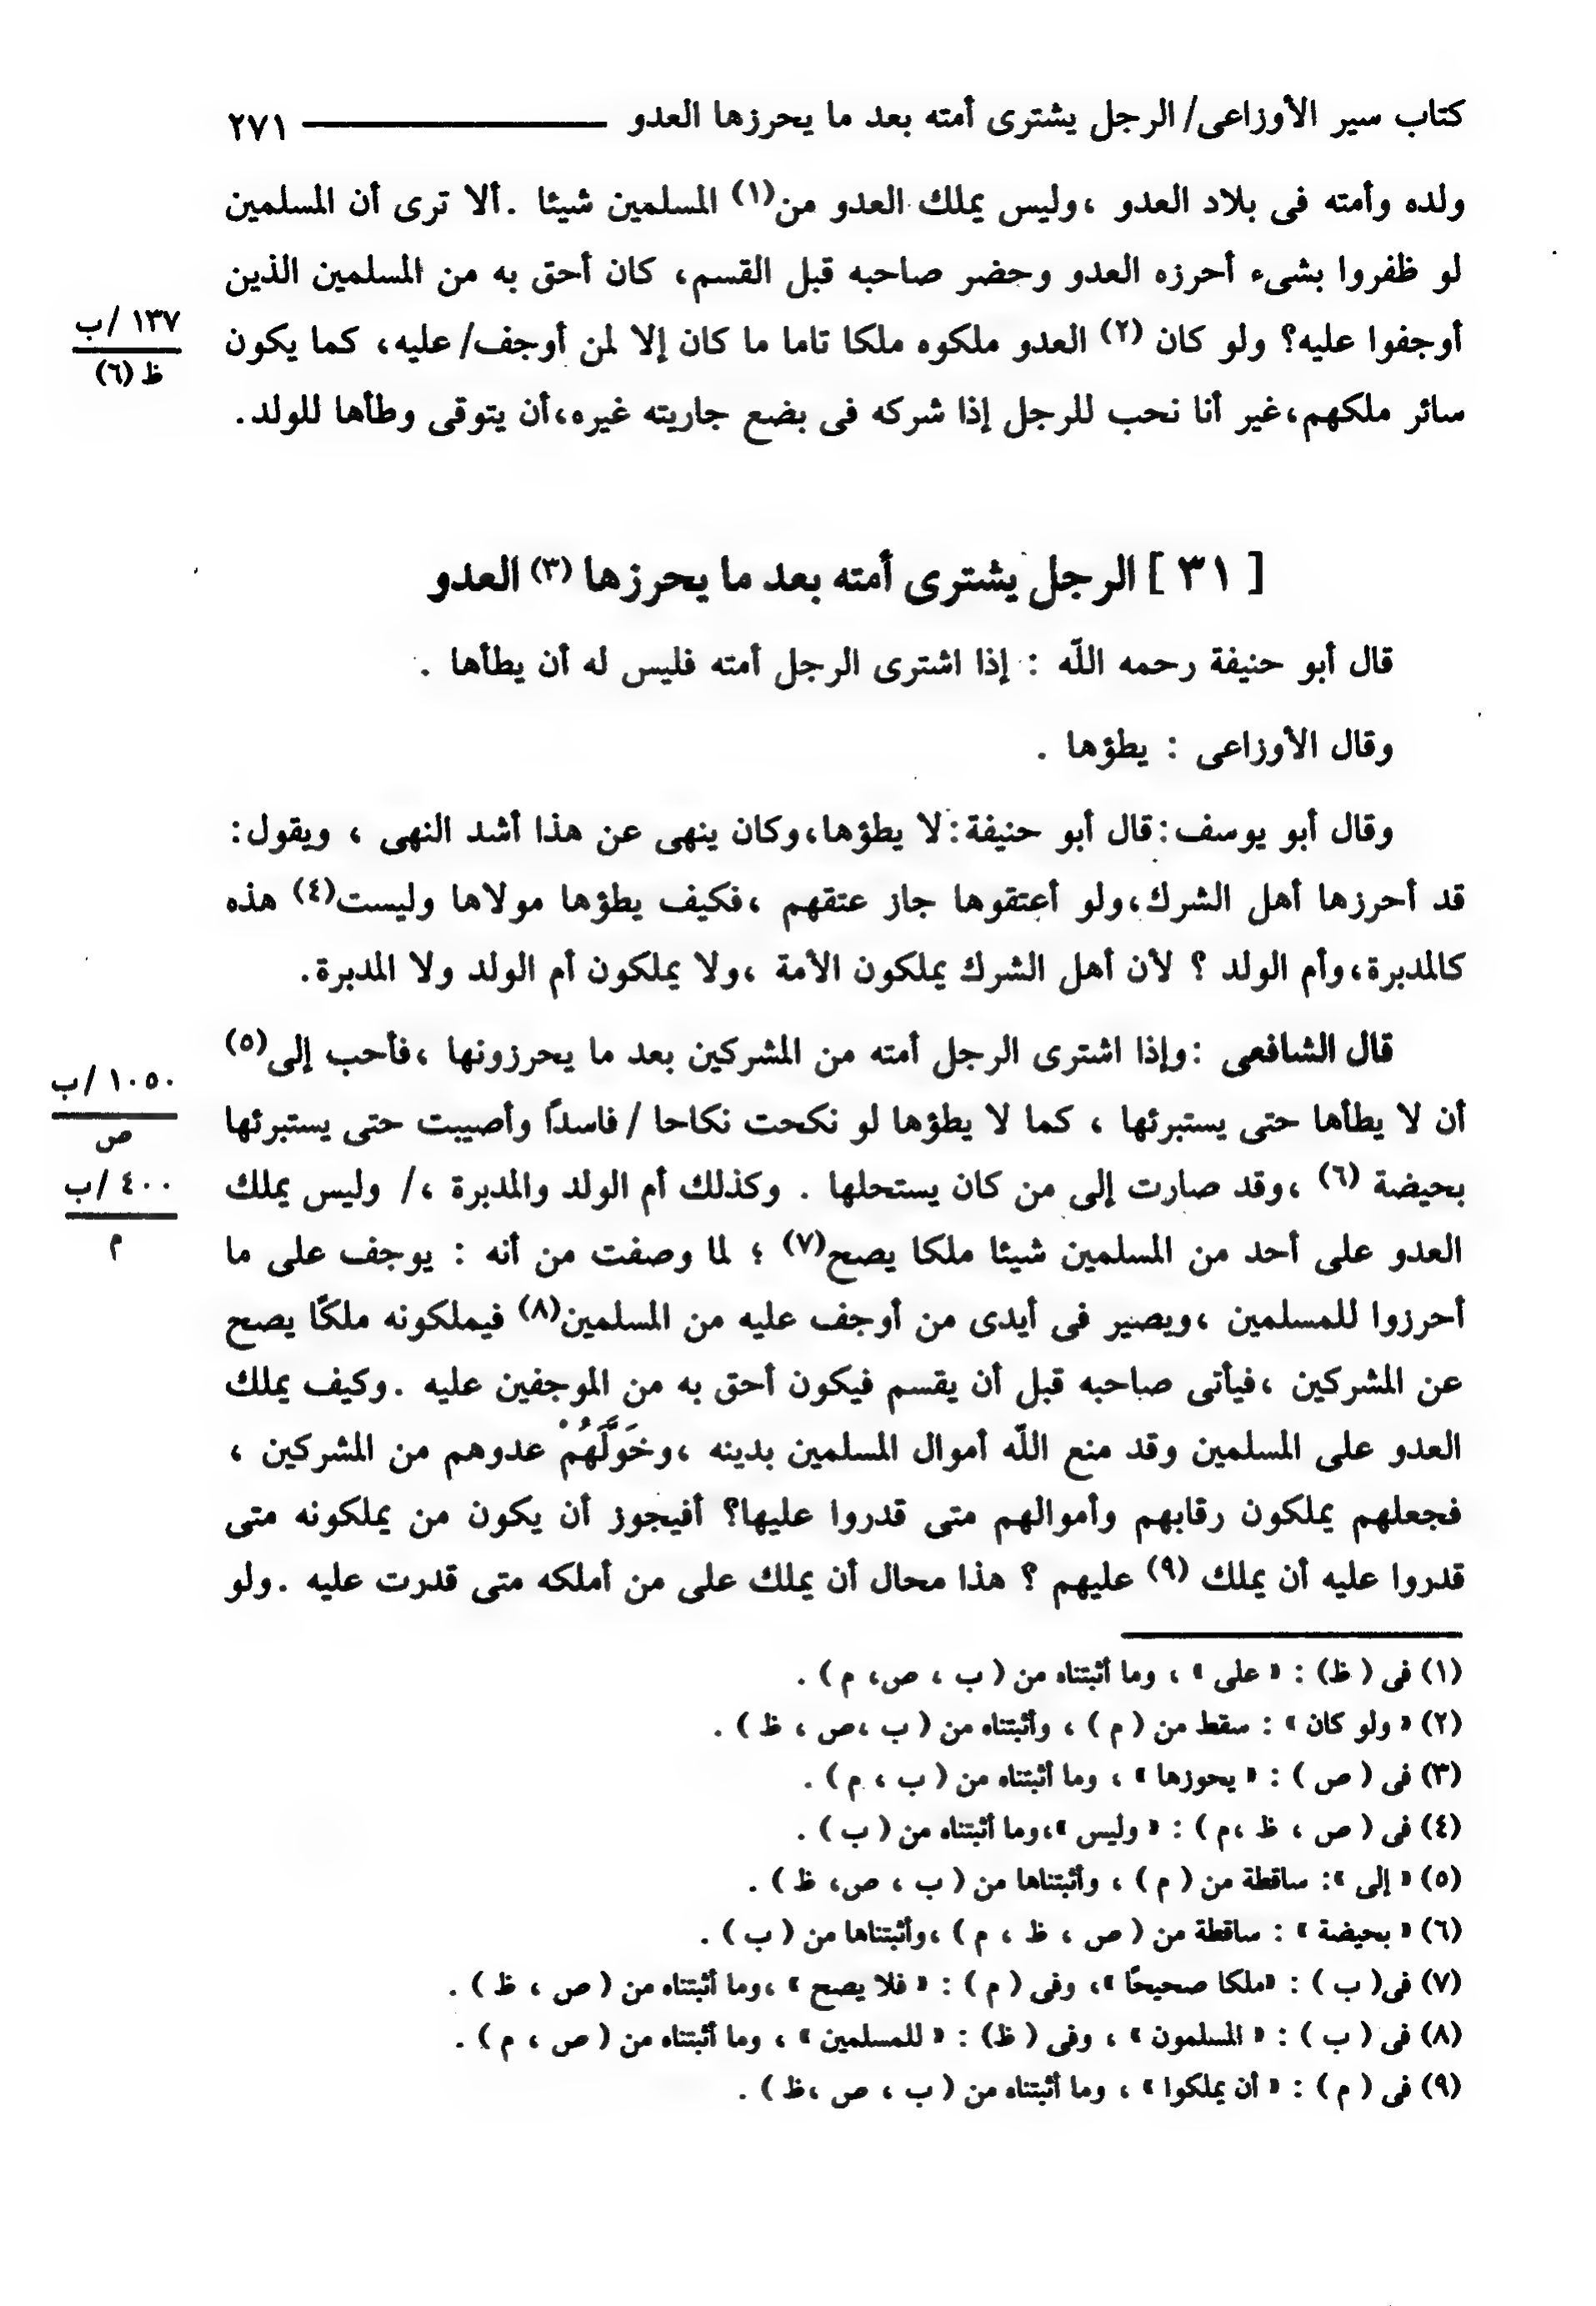 كتاب سير الأوزاعى/ الرجل يشترى أمته بعد ما يحرزها العدو ٢٧١
ولده وأمته فى بلاد العدو ،وليس يملك العدو من(١) المسلمين شيئا . ألا ترى أن المسلمين
لو ظفروا بشىء أحرزه العدو وحضر صاحبه قبل القسم، كان أحق به من المسلمين الذين
أوجفوا عليه؟ ولو كان (٢) العدو ملكوه ملكا تاما ما كان إلا لمن أوجف/ عليه، كما يكون
١٣٧ /ب
ظ (٦)
سائر ملكهم،غير أنا نحب للرجل إذا شركه فى بضع جاريته غيره،أن يتوقى وطأها للولد.
[ ٣١ ] الرجل يشترى أمته بعد ما يحرزها (٣) العدو
قال أبو حنيفة رحمه اللّه : إذا اشترى الرجل أمته فليس له أن يطأها .
وقال الأوزاعى : يطؤها .
وقال أبو يوسف:قال أبو حنيفة:لا يطؤها،وكان ينهى عن هذا أشد النهى ، ويقول:
قد أحرزها أهل الشرك،ولو أعتقوها جاز عتقهم ،فكيف يطؤها مولاها وليست(٤) هذه
كالمدبرة،وأم الولد ؟ لأن أهل الشرك يملكون الأمة ،ولا يملكون أم الولد ولا المدبرة.
قال الشافعى :وإذا اشترى الرجل أمته من المشركين بعد ما يحرزونها ،فأحب إلى(٥)
١٠٥٠ /ب
ص
أن لا يطأها حتى يستبرئها ، كما لا يطؤها لو نكحت نكاحا /فاسداً وأصيبت حتى يستبرئها
بحيضة (٦) ،وقد صارت إلى من كان يستحلها . وكذلك أم الولد والمدبرة ،/ وليس يملك
٤٠٠ /ب
م
العدو على أحد من المسلمين شيئا ملكا يصح(٧) ؛ لما وصفت من أنه : يوجف على ما
أحرزوا للمسلمين ،ويصير فى أيدى من أوجف عليه من المسلمين(٨) فيملكونه ملكًا يصح
عن المشركين ،فيأتى صاحبه قبل أن يقسم فيكون أحق به من الموجفين عليه .وكيف يملك
العدو على المسلمين وقد منع اللّه أموال المسلمين بدينه ،وخَوَّلَهُمْ عدوهم من المشركين ،
فجعلهم يملكون رقابهم وأموالهم متى قدروا عليها؟ أفيجوز أن يكون من يملكونه متى
قدروا عليه أن يملك (٩) عليهم ؟ هذا محال أن يملك على من أملكه متى قدرت عليه .ولو
(١) فى ( ظ) : « على » ، وما أثبتناه من ( ب ، ص، م ) .
(٢) « ولو كان » : سقط من ( م ) ، وأثبتناه من ( ب ،ص ، ظ ) .
(٣) فى ( ص ) : « يحوزها » ، وما أثبتناه من ( ب ، م ) .
(٤) فى ( ص ، ظ ،م ) : « وليس »،وما أثبتناه من ( ب ) .
(٥) « إلى »: ساقطة من ( م ) ، وأثبتناها من ( ب ، ص، ظ ) .
(٦) « بحيضة » : ساقطة من ( ص ، ظ ، م ) ،وأثبتناها من ( ب ) .
(٧) فى( ب ) : «ملكا صحيحًا »، وفى ( م ) : « فلا يصح » ،وما أثبتناه من ( ص ، ظ ) .
(٨) فى ( ب ) : « المسلمون » ، وفى ( ظ) : « للمسلمين » ، وما أثبتناه من ( ص ، م ) .
(٩) فى ( م ) : « أن يملكوا » ، وما أثبتناه من ( ب ، ص ،ظ ) .